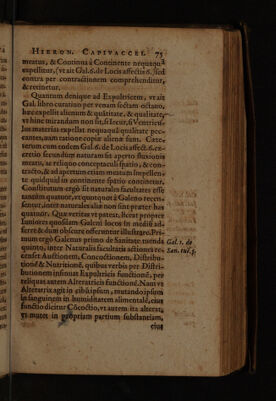 HIERON. CAPIVACCEI. 75
meatus, & Continua à Continente nequeqaȝ
expellitur, (vt ait Gal. 6. de Locis affectis 6. sed
contra per contractionem comprehenditur,
& retinetur.
Quantum denique ad Expultricem, vt ait
Gal. libro curatio per venam sectam octauo,
hæc expellit alienum & qualitate, & quantitate,
vt hinc mirandum non sit, si Iecur, si Ventricu-
lus materias expellat nequaquã qualitate pec-
cantes, cum ratione copiæ alienæ sint. Cæte-
rium cum eodem Gal. 6. de Locis affect. 6. ex-
cretio secundum naturam sit aperto fluxionis
meatu, ac reliquo conceptaculi spatio, & con-
tracto, & ad apertum etiam meatum impellen-
te quidquid in continente spatio continetur.
Constitutum ergò sit naturales facultates esse
tantùm quatuor, vt & quatuor à Galeno recen-
sentur. sunt enim naturalibus instrumentis
Quæ veritas vt pateat, liceat propter
Iuniores quosdam Galeni locos in mediũ ad-
ferre & dum obscure offeruntur illustrare. Pri-
mum ergò Galenus primo de Sanitate tuenda
quinto, inter Naturalis facultatis actiones re-
censet Auctionem, Concoctionem, Distribu-
tionē & Nutritionē, quibus verbis per Distri-
butionem insinuat Expultricis functionē, per
reliquas autem Alteratricis functionē. Nam vt
Alteratrix agit in cibũ ipsum, mutando ipsum
in sanguinem in humiditatem alimentalē, eius
functio dicitur Cōcoctio, vt autem ita alterat,
vt mutet in propriam partium substantiam,
eius
Gal. 1. de
San. tue. 5.